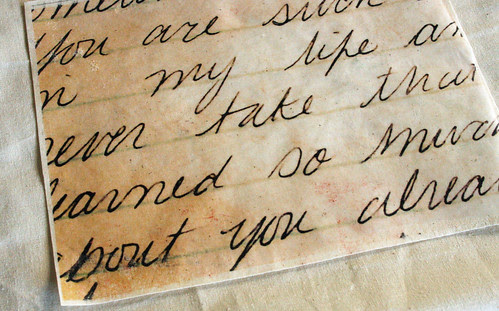 you are such
in my life an
never take that
learned so much
about you alrea